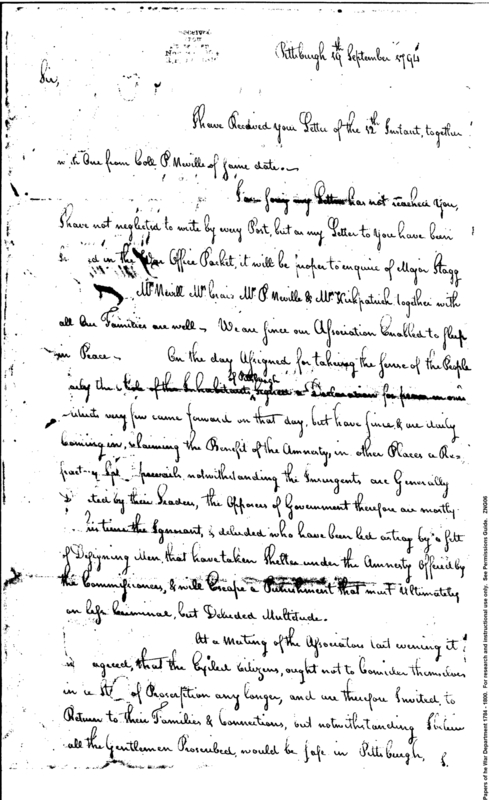 Pittsburgh 19th September 1794
Sir,
I have Received your Letter of the 12th Instant, together
with One from Coll P Nevills of same date.
has not reached you,
I have not neglected to write by every Post, but as my Letter to you have been
in the War Office Packet, it will be proper to enquire of Major Stagg
Mr Nevill Mr Craig Mr P Neville & Mr Kirkpatrick together with
all Our Families are well — We are since our Association Enabled to sleep
in Peace — On the day Assigned for takeing the sense of the People
of Pittsburgh
of the Inhabitants signed a Declaration
very few came forward on that day, but have since, & are daily
Coming in, claiming the Benefit of the Amnesty, in other Places a Re-
prevails, notwithstanding the Insurgents are Generally
by their Leaders, the Opposers of Government therefore are mostly
the Ignorant, & deluded who have been led astray by a sett
of Designing Men, that have taken Shelter under the Amnesty Offered by
the Commissioners, & will Escape a Punishment that must Ultimately
on less Criminal, but Deluded Multitude.
At a Meeting of the Associators last evening it
agreed, that the Exiled Citizens, ought not to Consider themselves
in a of Proscription any longer, and are therefore Invited, to
Return to their Families & Connections, but notwithstanding
all the Gentlemen Proscribed, would be safe in Pittsburgh,
Papers of he War Department 1784 - 1800. For research and instructional use only. See Permissions Guide. ZNG06